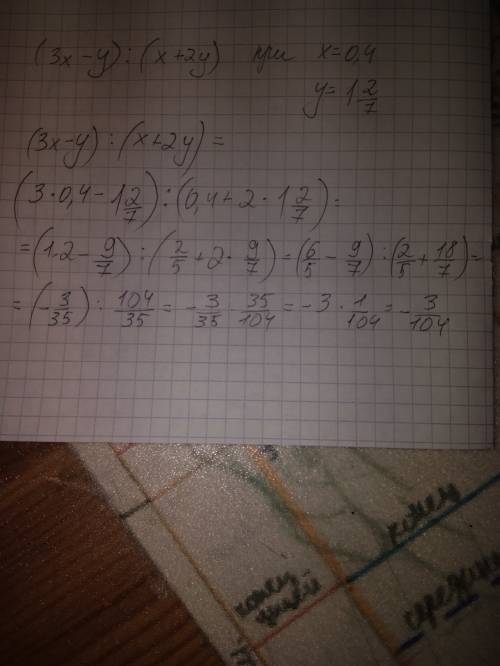 (3x-y):(x+2y) при x=0,4
y=1 2/7
(3x-y):(x+2y)=
(3·0,4-1 2/7):(0,4+2·1 2/7)=
=(1,2-9/7):(2/5+2·9/7)=(6/5-9/7):(2/5+18/7)=
=(-3/35):104/35=-3/35·35/104=-3·1/104=-3/104
конец
конец
середина